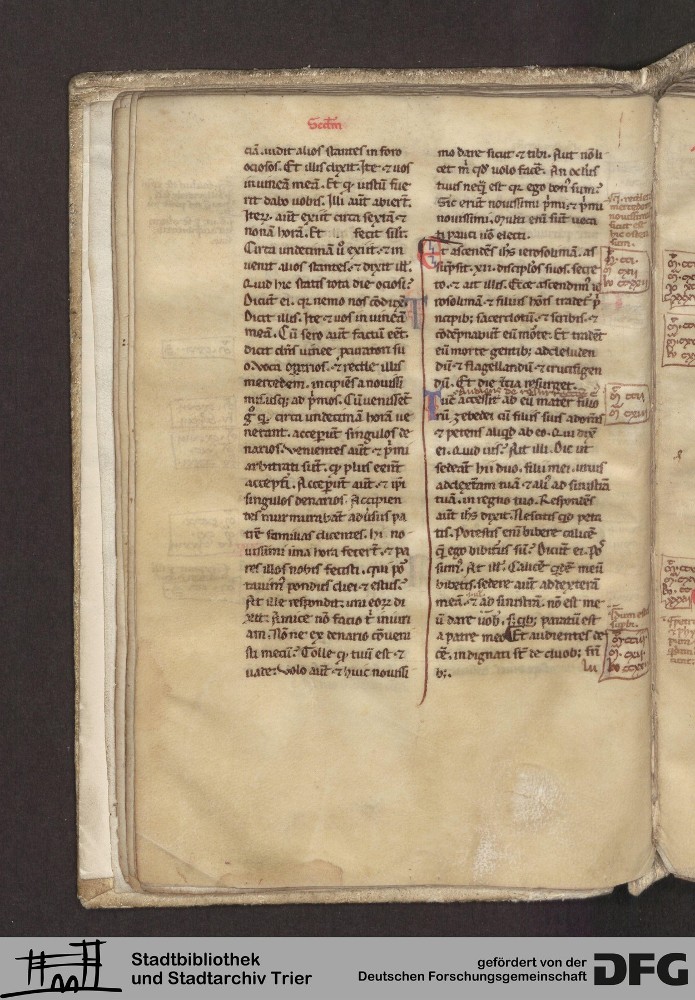 Scdm
ciā. uidit alios stantes in foro
ociosos. Et illis dixit. Ite ⁊ uos
in uineā meā. Et qͦ iustū fue
rit dabo uobis. Illi aūt abierт.
Iteꝝ aūt exiit circa sextā ⁊
nonā horā. Et fecit silʳ.
Circa undecimā ů exiit. ⁊ in
uenit alios stantes. ⁊ dixit ill'.
Quid hic statis tota die ociosi?
Dicūt ei. qꝛ nemo nos cōduxͭ.
Dicit illis. Ite ⁊ uos in uineā
meā. Cū sero aūt factū eēt.
dicit dn̄s uinee ꝓcuratori su
o. Voca operarios. ⁊ redde illis
mercedem. incipiēs a nouissi
mis usqꝫ ad pͥmos. Cū uenisset
gͦ qͥ circa undecimā horā ue
nerant. acceperūt singulos de
narios. Venientes aūt ⁊ pͥmi
arbitrati sūt. qꝛ plus eent
accepti. Acceperūt aūt ⁊ ip̄i
singulos denarios. Accipien
tes murmurabāt aduersus pa
trē familias dicentes. Hi no
uissimi una hora fecerт. ⁊ pa
res illos nobis fecisti. qui por
tauimꝰ pondus diei ⁊ estus?
At ille respondit uni eoꝝ di
xit. Amice nō facio tͥ iniuri
am. Nōne ex denario cōueni
sti mecū? Tolle qͦ tuū est ⁊
uade. Volo aūt ⁊ huic nouissi
mo dare sicut ⁊ tibi. Aut nō li
cet m̄ qd' uolo facē. An oculꝰ
tuus neqͣ est qꝛ ego bonꝰ sum?
Sic erūt nouissimi pͥmi. ⁊ pͥmi
nouissimi. Multi eni sūt uoca
ti pauci ů electi.
Et ascendēs ih̄s ierosolimā. as
sūpsit .xii. discipl'os suos. secre
to. ⁊ ait illis. Ecce ascendimꝰ ie
rosolimā ⁊ filius hoīs tradetʳ pͥ
ncipibꝫ sacerdotū ⁊ scribis. ⁊
cōdēpnabūt eū morte. Et tradēt
eū morte gentibꝫ ad deluden
dū ⁊ flagellandū ⁊ crucifigen
dū. Et die t̓cia resurget.
Tūc accessit ad eū mater filio
rū zebedei cū filiis suis adorās
⁊ petens aliqd ab eo. Qui dixͭ
ei. Quid uis? Ait illi. Dic ut
sedeāt hii duo filii mei. unus
ad dextam tuā ⁊ aliꝰ ad sinistrā
tuā. in regno tuo. Respondēs
aūt ih̄s dixit. Nescitis qid peta
tis. Potestis eni bibere calicē
quē ego bibiturꝰ sū? Dicūt ei. Pos
sumꝰ. Ait ill'. Calicē qid̄ē meū
bibetis. sedere aūt ad dexterā
meā. ⁊ ad sinistrā. nō est me
ū dare uob̄. sꝫ quibꝫ paratū est
a patre meo. Et audientes de
cē. indignati st̄ de duobꝫ fr̄i
bꝫ.
Stadtbibliothek
und Stadtarchiv Trier
gefördert von der
Deutschen Forschungsgemeinschaft
DFG